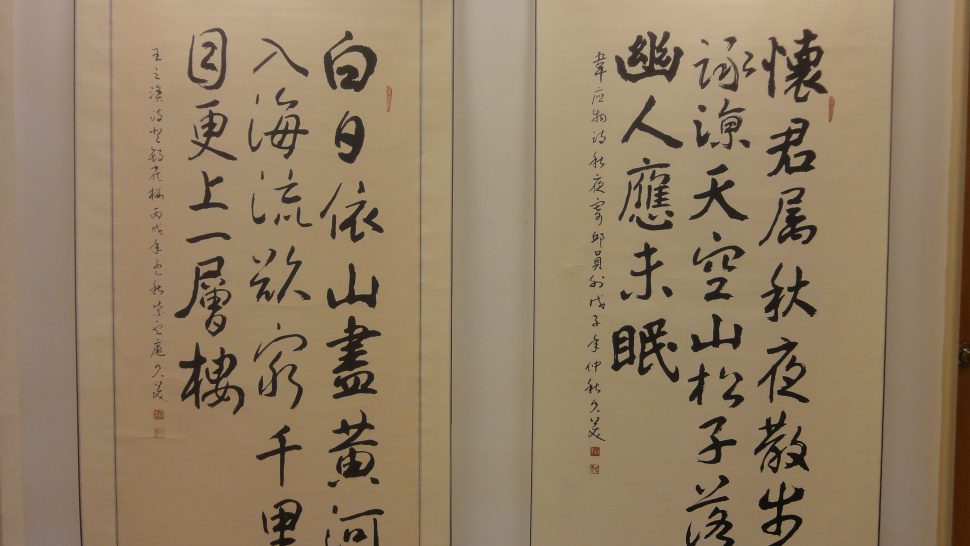 懷君属秋夜散步
詠涼天空山松子落
幽人應未眠
韋应物诗秋夜寄邱員外戊子年仲秋久
白日依山盡黄河
入海流欲窮千里
目更上一層樓
王之渙诗登鹳雀楼丙戌年秋庵久